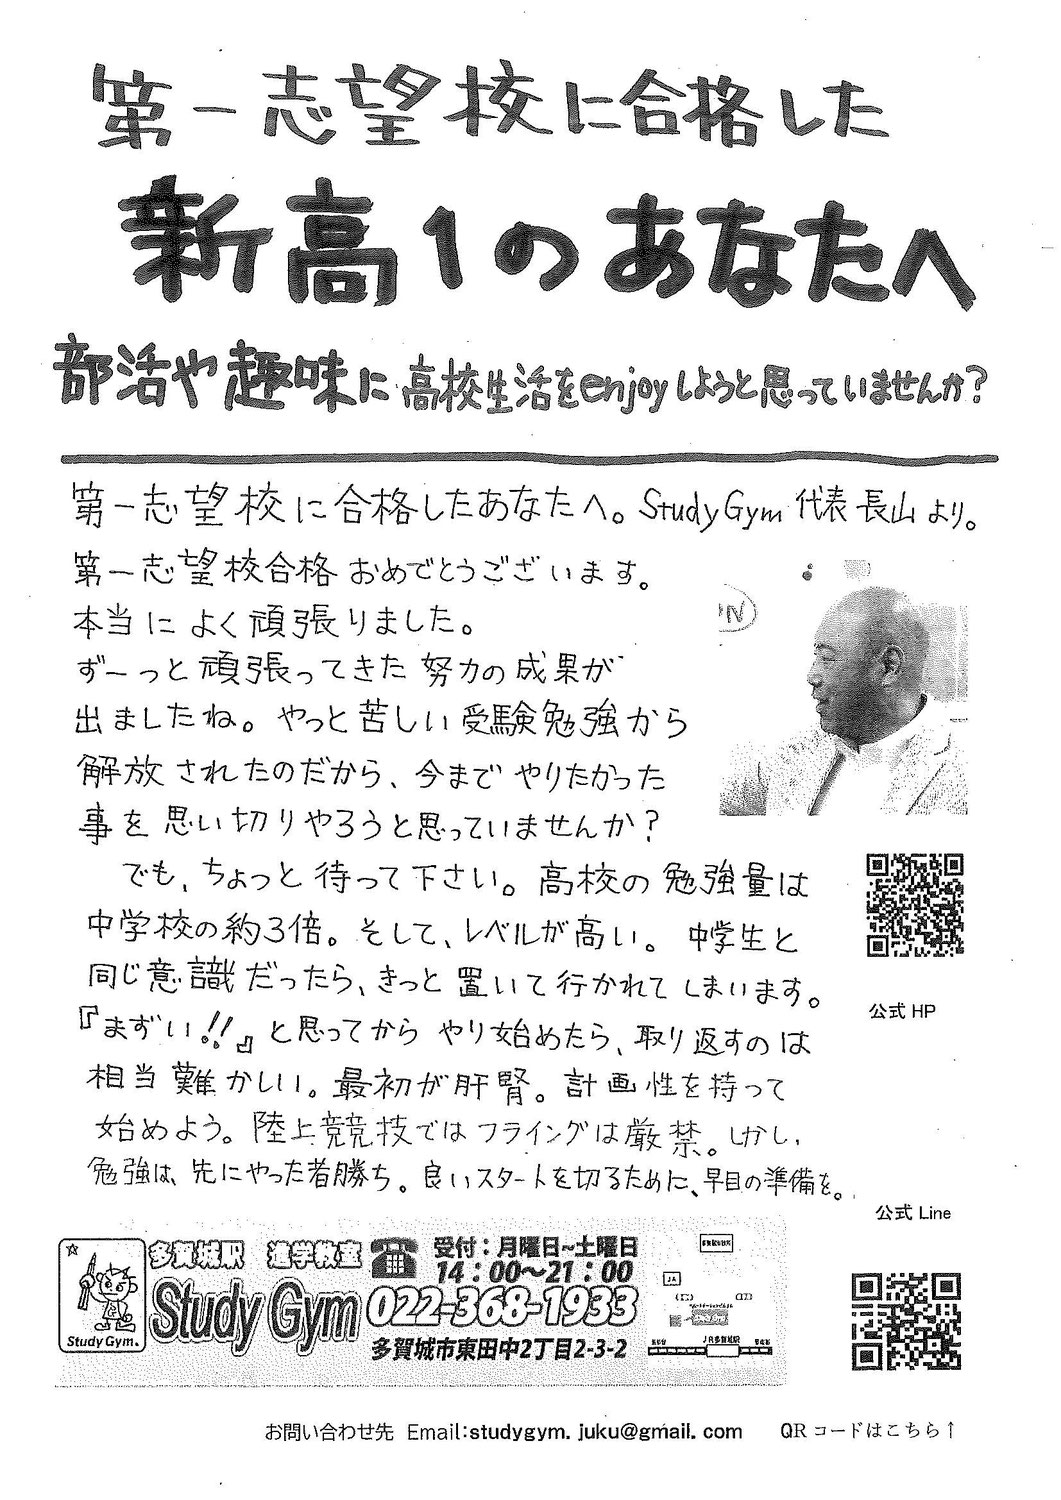 第一志望校に合格した
新高1のあなたへ
部活や趣味に高校生活をenjoyしようと思っていませんか?
第一志望校に合格したあなたへ。StudyGym 代表 長山より。
第一志望校合格 おめでとうございます。
本当に よく頑張りました。
ずーっと頑張ってきた努力の成果が
出ましたね。やっと苦しい受験勉強から
解放されたのだから、今まで やりたかった
事を思い切りやろうと思っていませんか?
でも、ちょっと待って下さい。高校の勉強量は
中学校の約3倍。そして、レベルが高い。中学生と
同じ意識だったら、きっと置いて行かれてしまいます。
『まずい!!』と思ってから やり始めたら、取り返すのは
相当難かしい。最初が肝腎。計画性を持って
始めよう。陸上競技ではフライングは厳禁。しかし、
勉強は、先にやった者勝ち。良いスタートを切るために、早目の準備を。
公式 HP
公式 Line
Study Gym.
多賀城駅 進学教室
Study Gym
受付:月曜日~土曜日
14:00~21:00
022-368-1933
多賀城市東田中2丁目2-3-2
JR多賀城駅
お問い合わせ先 Email:studygym.juku@gmail.com QRコードはこちら↑